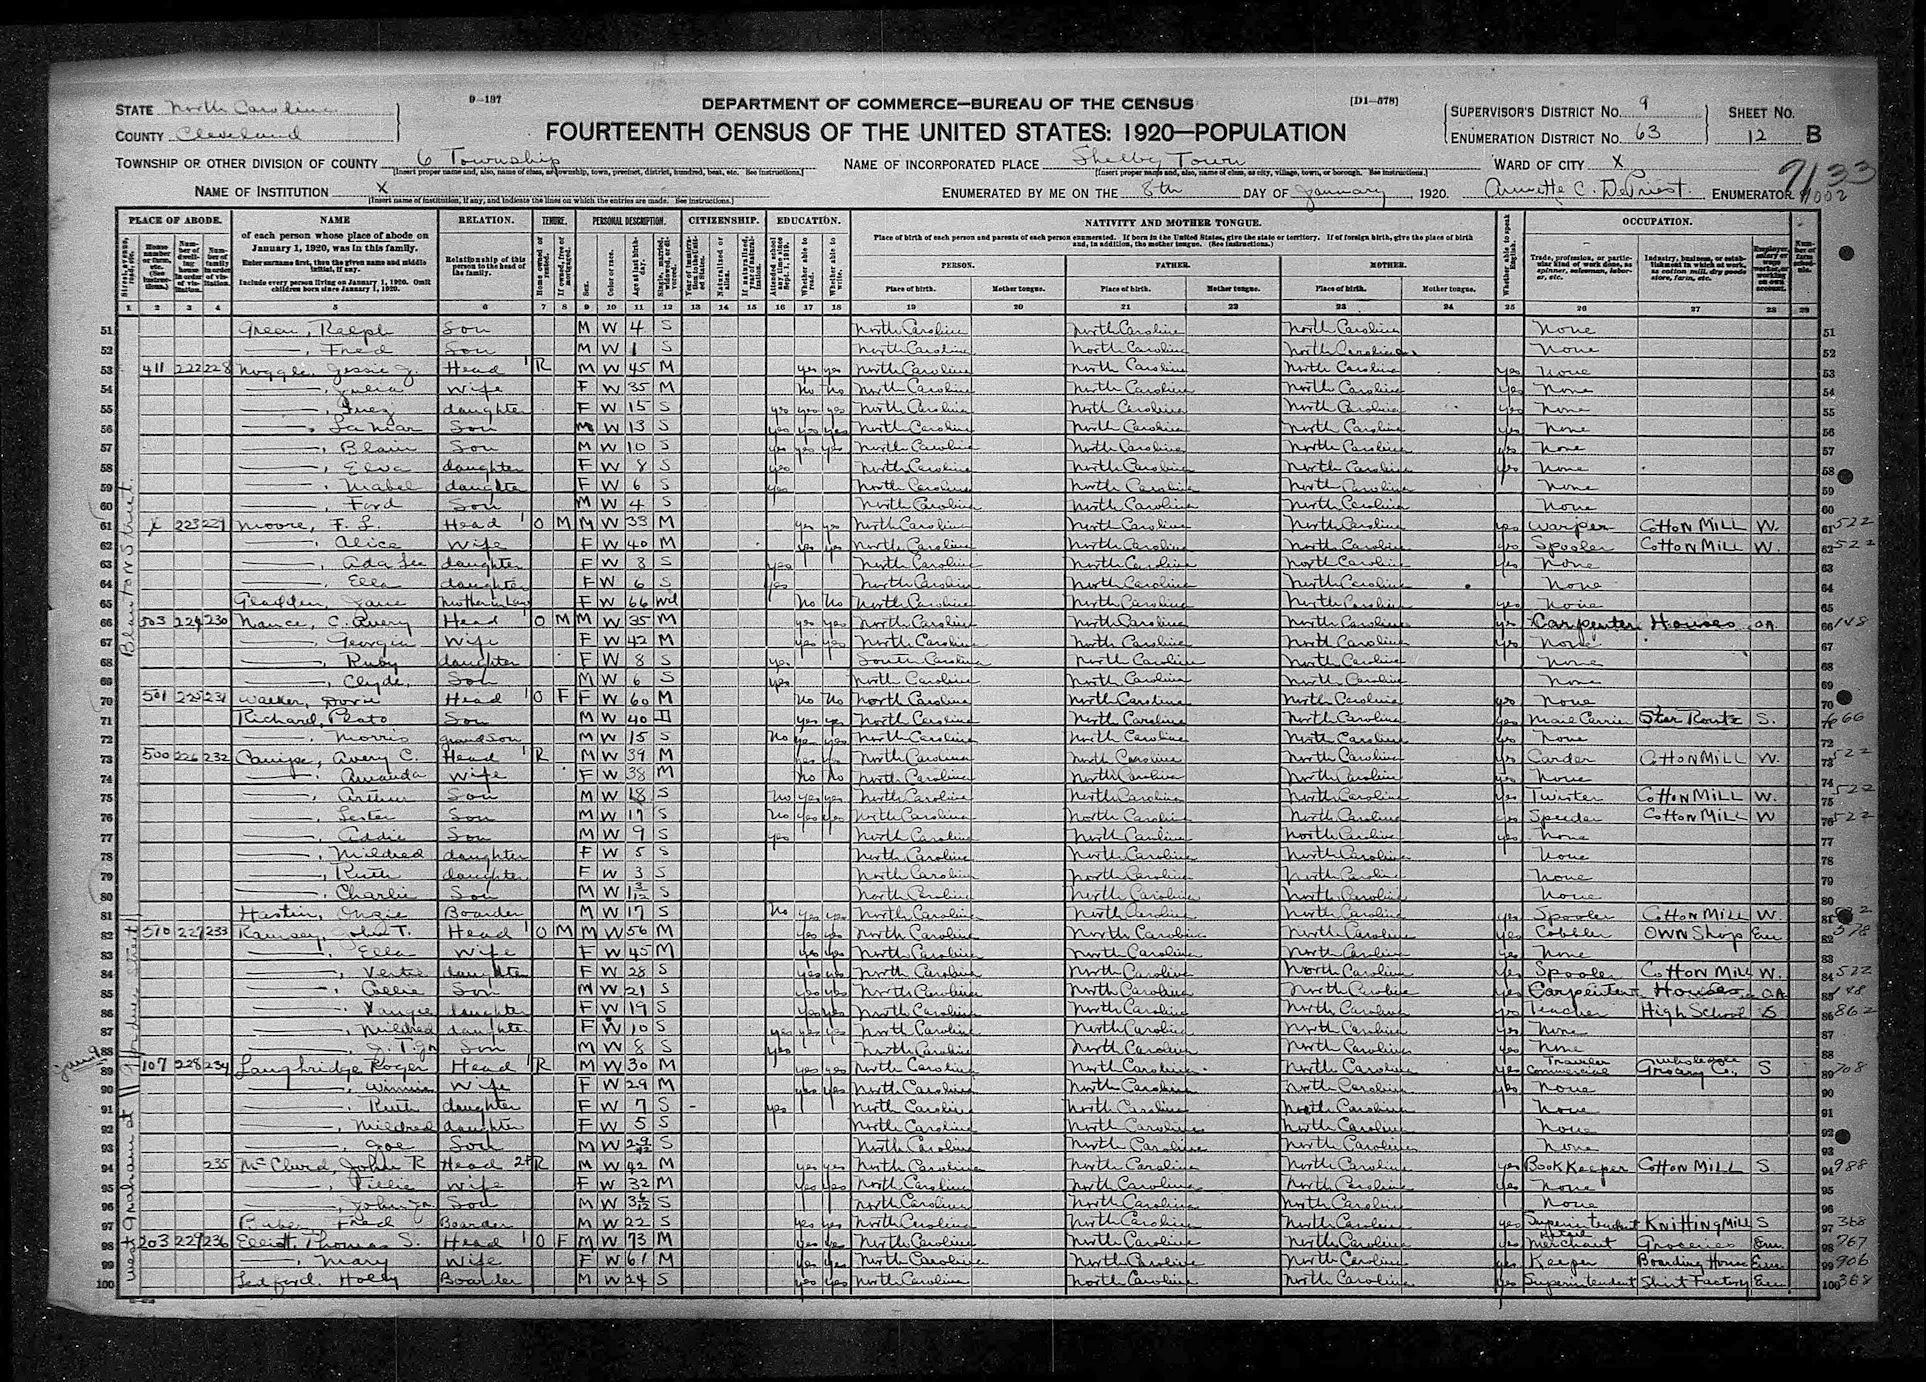 D-187
DEPARTMENT OF COMMERCE—BUREAU OF THE CENSUS
[D1-878]
STATE North Carolina
COUNTY Cleveland
FOURTEENTH CENSUS OF THE UNITED STATES: 1920—POPULATION
SUPERVISOR'S DISTRICT NO. 9 SHEET NO.
ENUMERATION DISTRICT NO. 63 12 B
TOWNSHIP OR OTHER DIVISION OF COUNTY 6 Township NAME OF INCORPORATED PLACE Shelby Town WARD OF CITY X
NAME OF INSTITUTION X ENUMERATED BY ME ON THE 8th DAY OF January, 1920. Annette C. DePriest ENUMERATOR
PLACE OF ABODE. NAME RELATION. TENURE. PERSONAL DESCRIPTION. CITIZENSHIP. EDUCATION. NATIVITY AND MOTHER TONGUE. OCCUPATION.
of each person whose place of abode on January 1, 1920, was in this family.
Enter surname first, then the given name and middle initial, if any.
Include every person living on January 1, 1920. Omit children born since January 1, 1920.
Relationship of this person to the head of the family.
Place of birth of each person and parents of each person enumerated. If born in the United States, give the state or territory. If of foreign birth, give the place of birth and, in addition, the mother tongue. (See instructions.)
PERSON. FATHER. MOTHER.
Place of birth. Mother tongue. Place of birth. Mother tongue. Place of birth. Mother tongue.
1 2 3 4 5 6 7 8 9 10 11 12 13 14 15 16 17 18 19 20 21 22 23 24 25 26 27 28 29
Blanton Street
West Graham St
51 Green, Ralph Son M W 4 S North Carolina North Carolina North Carolina None 51
52 Fred Son M W 1 S North Carolina North Carolina North Carolina None 52
53 411 222 228 Noggle, Jessie J. Head 1 R M W 45 M yes yes North Carolina North Carolina North Carolina yes None 53
54 Julia Wife F W 35 M No No North Carolina North Carolina North Carolina yes None 54
55 Inez daughter F W 15 S yes yes yes North Carolina North Carolina North Carolina yes None 55
56 LaMar Son M W 13 S yes yes yes North Carolina North Carolina North Carolina yes None 56
57 Blain Son M W 10 S yes yes yes North Carolina North Carolina North Carolina yes None 57
58 Elva daughter F W 8 S yes North Carolina North Carolina North Carolina yes None 58
59 Mabel daughter F W 6 S yes North Carolina North Carolina North Carolina None 59
60 Ford Son M W 4 S North Carolina North Carolina North Carolina None 60
61 X 223 229 Moore, F. L. Head 1 O M M W 33 M yes yes North Carolina North Carolina North Carolina yes Warper Cotton Mill W. 61 522
62 Alice Wife F W 40 M yes yes North Carolina North Carolina North Carolina yes Spooler Cotton Mill W. 62 522
63 Ada Lee daughter F W 8 S yes North Carolina North Carolina North Carolina yes None 63
64 Ella daughter F W 6 S yes North Carolina North Carolina North Carolina None 64
65 Gladden, Jane Mother in Law F W 66 Wd No No North Carolina North Carolina North Carolina yes None 65
66 503 224 230 Nance, C. Avery Head O M M W 35 M yes yes North Carolina North Carolina North Carolina yes Carpenter Houses OA 66 148
67 Georgia Wife F W 42 M yes yes North Carolina North Carolina North Carolina yes None 67
68 Ruby daughter F W 8 S yes South Carolina North Carolina North Carolina None 68
69 Clyde, Son M W 6 S yes North Carolina North Carolina North Carolina None 69
70 501 225 231 Walker, Dovie Head 1 O F F W 60 M No No North Carolina North Carolina North Carolina yes None 70
71 Richard, Plato Son M W 40 D yes yes North Carolina North Carolina North Carolina yes Mail Carrier Star Route S. 71
72 Morris grandson M W 15 S No yes yes North Carolina North Carolina North Carolina yes None 72
73 500 226 232 Canipe, Avery C. Head 1 R M W 39 M yes yes North Carolina North Carolina North Carolina yes Carder Cotton Mill W. 73 522
74 Amanda Wife F W 38 M No No North Carolina North Carolina North Carolina yes None 74
75 Arthur Son M W 18 S No yes yes North Carolina North Carolina North Carolina yes Twister Cotton Mill W. 75 522
76 Lester Son M W 17 S No yes yes North Carolina North Carolina North Carolina yes Speeder Cotton Mill W 76 522
77 Addie Son M W 9 S yes North Carolina North Carolina North Carolina yes None 77
78 Mildred daughter F W 5 S North Carolina North Carolina North Carolina None 78
79 Ruth daughter F W 3 S North Carolina North Carolina North Carolina None 79
80 Charlie Son M W 1 3/12 S North Carolina North Carolina North Carolina None 80
81 Onzie Boarder M W 17 S No yes yes North Carolina North Carolina North Carolina yes Spooler Cotton Mill W. 81
82 510 227 233 Ramsey, John T. Head 1 O M M W 56 M yes yes North Carolina North Carolina North Carolina yes Cobbler Own Shop Em 82 578
83 Ella Wife F W 45 M yes yes North Carolina North Carolina North Carolina yes None 83
84 Vertie daughter F W 28 S yes yes North Carolina North Carolina North Carolina yes Spooler Cotton Mill W. 84 522
85 Collie Son M W 21 S yes yes North Carolina North Carolina North Carolina yes Carpenter Houses OA 85 148
86 Vangie daughter F W 19 S yes yes North Carolina North Carolina North Carolina yes Teacher High School S 86 862
87 Mildred daughter F W 10 S yes yes yes North Carolina North Carolina North Carolina yes None 87
88 J. T. Jr Son M W 8 S yes North Carolina North Carolina North Carolina yes None 88
89 107 228 234 Laughridge, Roger Head 1 R M W 30 M yes yes North Carolina North Carolina North Carolina yes Commercial Traveler Wholesale Grocery Co. S 89 708
90 Winnie Wife F W 29 M yes yes North Carolina North Carolina North Carolina yes None 90
91 Ruth daughter F W 7 S yes North Carolina North Carolina North Carolina None 91
92 Mildred daughter F W 5 S North Carolina North Carolina North Carolina None 92
93 Joe Son M W S North Carolina North Carolina North Carolina None 93
94 235 McClurd, John R Head 2 R M W 42 M yes yes North Carolina North Carolina North Carolina yes Book Keeper Cotton Mill S 94 988
95 Wife F W 32 M yes yes North Carolina North Carolina North Carolina yes None 95
96 John Jr. Son M W 3 6/12 S North Carolina North Carolina North Carolina None 96
97 Fred Boarder M W 22 S yes yes North Carolina North Carolina North Carolina yes Superintendent Knitting Mill S 97 368
98 203 229 236 Elliott, Thomas S. Head 1 O F M W 73 M yes yes North Carolina North Carolina North Carolina yes Retail Merchant Groceries Em 98 767
99 Mary Wife F W 61 M yes yes North Carolina North Carolina North Carolina yes Keeper Boarding House Em 99 906
100 Ledford, Holly Boarder M W 24 S yes yes North Carolina North Carolina North Carolina yes Superintendent Shirt Factory Em 100 368